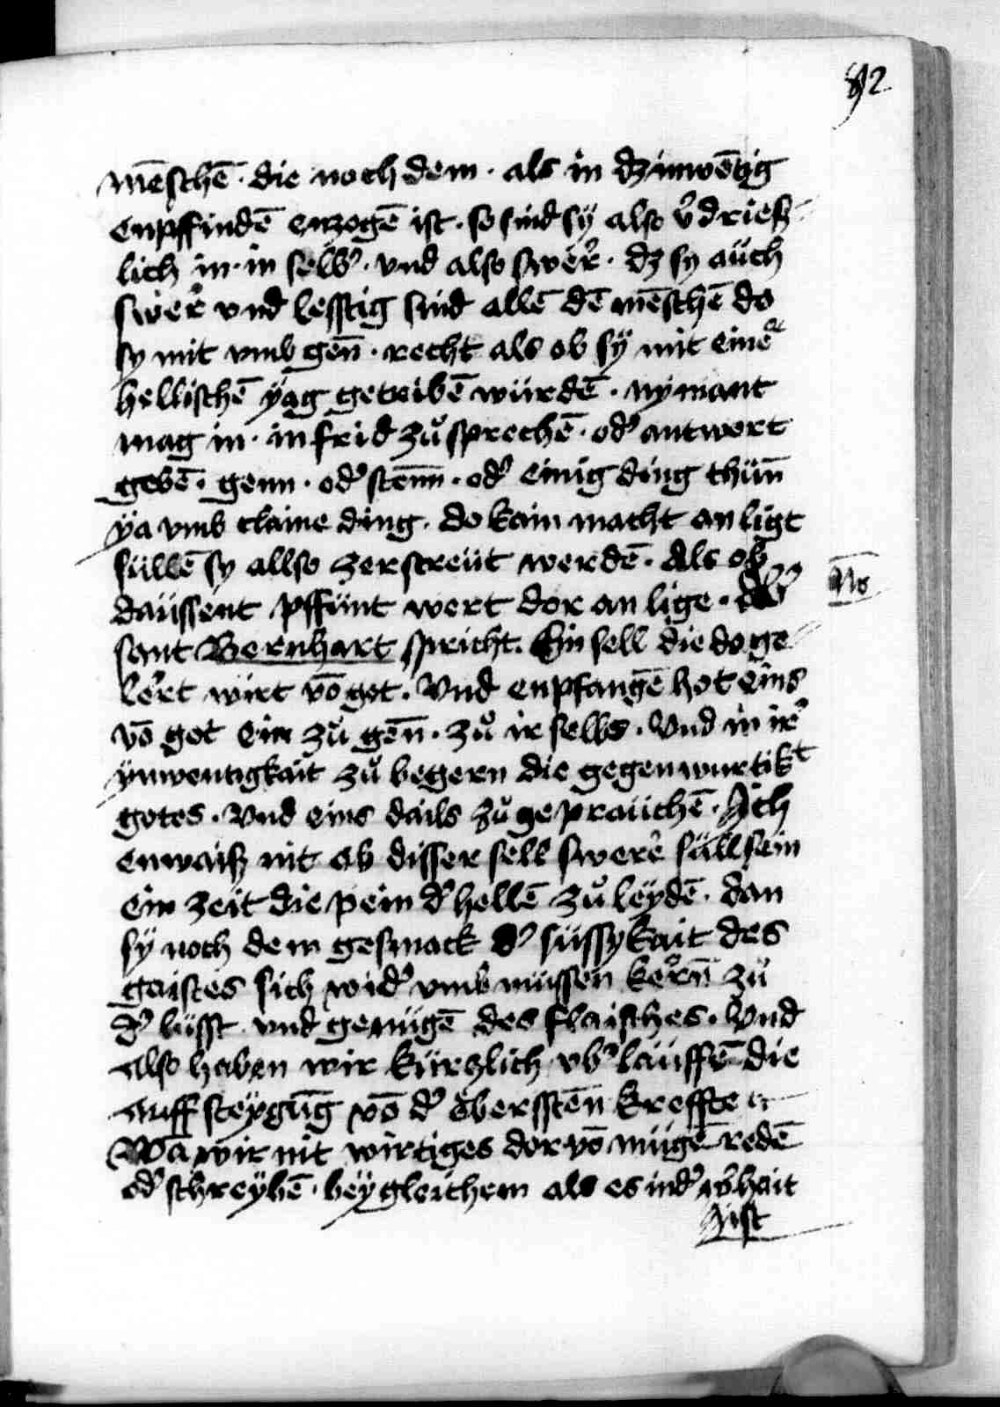 92
mēschē · die noch dem · als in dz inwētig
enpffindē enzogē ist · so sind sÿ also v̾drieß
lich in · in selb̾ · vnd also swer̾ · dz sy auch
swer̾ vnd lesstig sind allē dē mēschē do
sy mit vmb gen̄ · recht als ob sÿ mit einē
hellischē ÿag getribē würdē · nymant
mag in · in frid zů sprechē · od̾ antwort
gebē · genn · od̾ stenn̄ · od̾ einig ding thün̄
ÿa vmb claine ding · do kain macht an ligt
süllē sy allso zerstreüt werdē · Als ob
daüssent pffünt wert dor an lige ·
sant Bernhart spricht · Ein sell die do ge
lert wirt vō got · Vnd enpfangē hot eins
vō got ein zů gen̄ · zů ir selbs · Vnd in ir̾
ynwentigkait zů begern die gegenwurtikt
gotes · Vnd eins dails zů gepraüchē · Ich
enwaiß nit ob disser sell swer̾e süll sein
ein zeit die pein d̾ hellē zů leÿdē · dan
sÿ noch dem gesmack d̾ süssykait des
gaistes sich wid̾ vmb müssen kern̄ zů
d̾ lüsst vnd genügē des flaisches · Vnd
also haben wir kürczlich vb̾ laüffē die
auff steÿgūg vō d̾ öbersstēn kreffte
Wā wir nit wirtiges dor vō mügē redē
od̾ schreÿbē · beÿ gleichem als es in d̾ w̾hait
ist